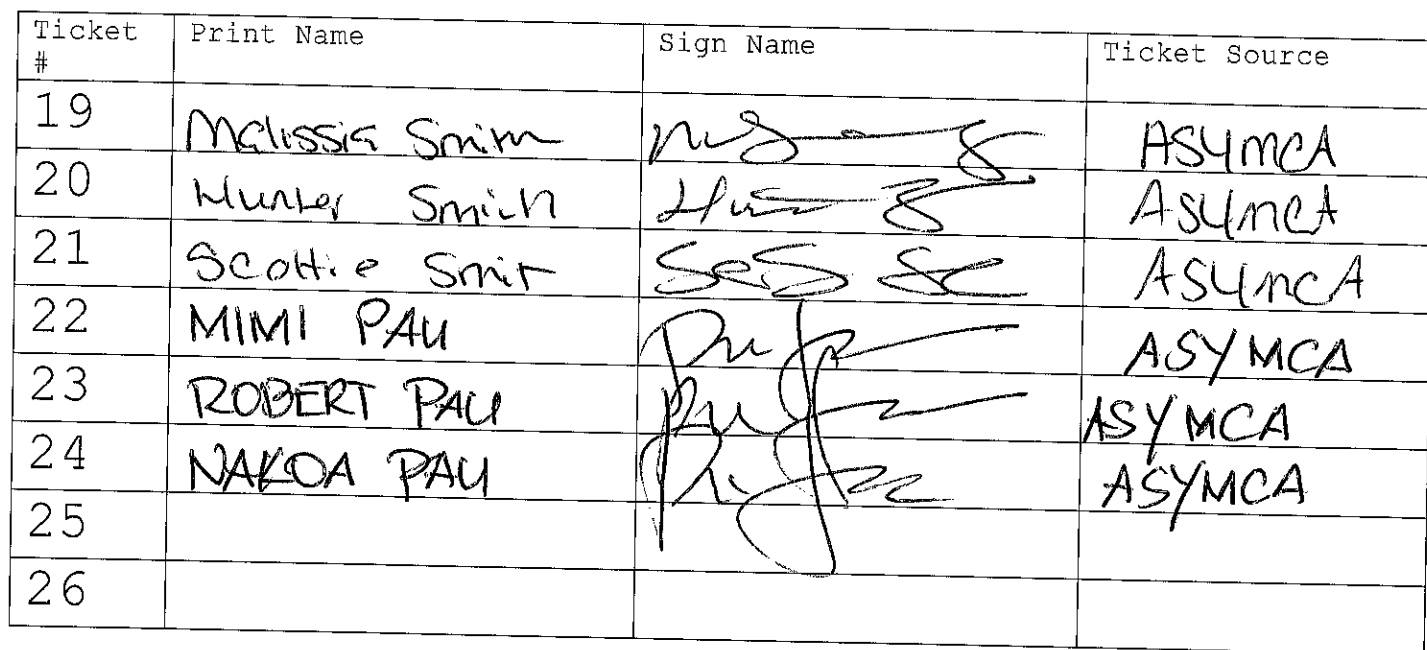 Ticket # Print Name Sign Name Ticket Source
19 Malissia Smith ASYMCA
20 Hunter Smith ASYMCA
21 Scottie Smit ASYMCA
22 MIMI PAU ASYMCA
23 ROBERT PAU ASYMCA
24 NAKOA PAU ASYMCA
25
26